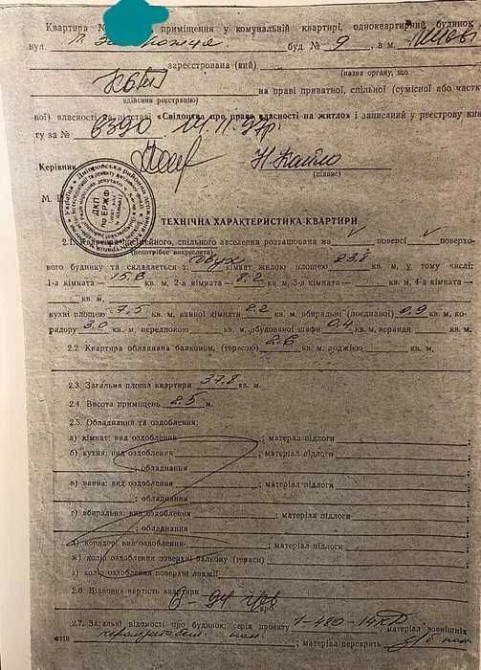 Квартира № приміщення у комунальній квартирі, одноквартирний будинок
вул. буд. № 9, в м.
зареєстрована (ний)
(назва органу, що
КБТІ на праві приватної, спільної (сумісної або частк
здійснив реєстрацію)
вої) власності на підставі «Свідоцтва про право власності на житло» і записаний у реєстрову кни
гу за № 6390 14.11.97р.
Керівник
(підпис)
М.
ДКП
по ЕРЖФ
ТЕХНІЧНА ХАРАКТЕРИСТИКА КВАРТИРИ
2.1. Квартира спільного заселення розташована на V поверсі V поверхо-
(непотрібне викреслити)
вого будинку та складається з двух кімнат жилою площею 23.8 кв. м, у тому числі:
1-а кімната — 15.8 кв. м, 2-а кімната — 8.0 кв. м, 3-я кімната — кв. м, 4-а кімната —
кв. м
кухні площею 7,5 кв. м, ванної кімнати 2.2 кв. м, вбиральні (поєднаної) 0,9 кв. м, ко-
ридору 3.0 кв. м, передпокою кв. м, вбудованої шафи 0.4 кв. м, веранди кв. м.
2.2. Квартира обладнана балконом, (терасою) 2.6 кв. м, лоджією кв. м,
2.3. Загальна площа квартири 37.8 кв. м.
2.4. Висота приміщень 2.5 м.
2.5. Обладнання та оздоблення:
а) кімнат: вид оздоблення ; матеріал підлоги
б) кухня: вид оздоблення ; матеріал підлоги
; обладнання
в) ванна: вид оздоблення ; матеріал підлоги
; обладнання
г) вбиральня: вид оздоблення ; матеріал підлоги
; обладнання
д) коридор: вид оздоблення ; матеріал підлоги
ж) колір оздоблення поверхні балкону (тераси)
з) колір оздоблення поверхні лоджії
2.6. Відновна вартість квартири
2.7. Загальні відомості про будинок: серія проекту 1-480-14КП
матеріал зовнішніх
матеріал перекрить з/б пан.